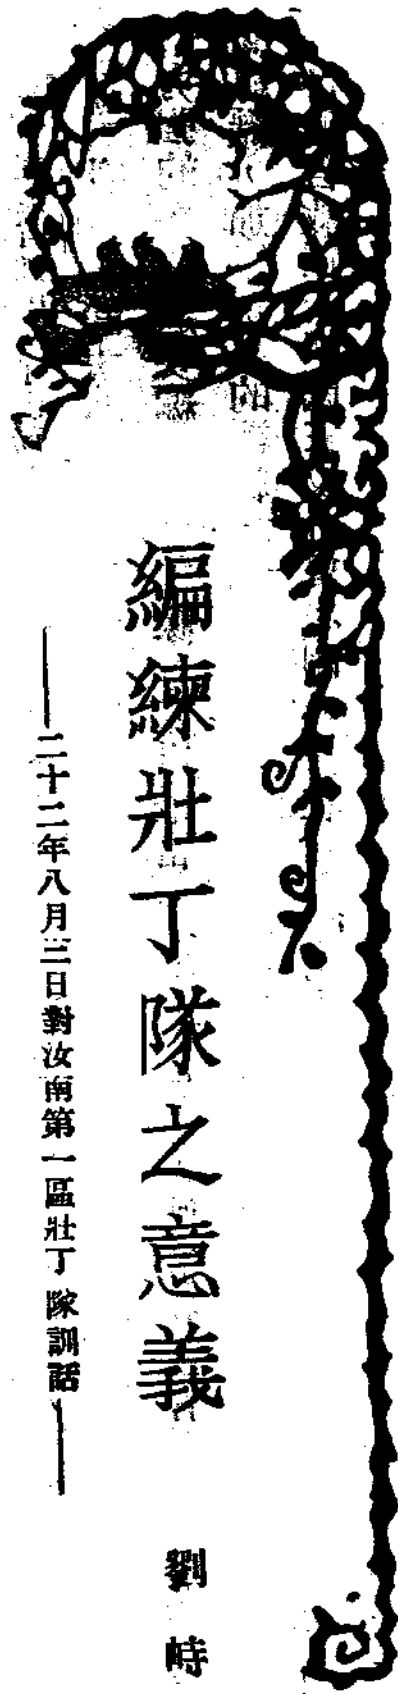 編練壯丁隊之意義
劉峙
——二十二年八月三日對汝南第一區壯丁隊訓話——